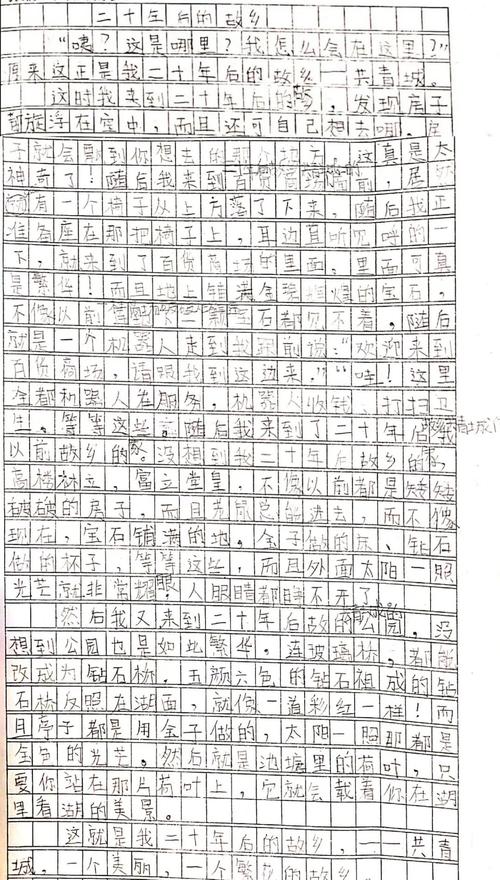 二十年后的故乡
“咦？这是哪里？我怎么会在这里？”
原来这正是我二十年后的故乡一共青城。
这时我来到二十年后的家，发现房子
都旋浮在空中，而且还可自己想去哪，房
子就会飘到你想去的那个地方，这真是太
神奇了！随后我来到百货商场前，居然
有一个椅子从上方落了下来，随后我正
准备座在那把椅子上，耳边直听见呼的一
下，就来到了百货商场的里面，里面可真
是繁华！而且地上铺满金碧辉煌的宝石，
不像以前石都见不着。随后
就是一个机器人走到我跟前说：“欢迎来到
百货商场，请跟我到这边来。”“哇！这里
全都机器人在服务，机器人收钱、打扫卫
生。等等这些。随后我来到了二十年后我
以前故乡的家。没想到我二十年后故乡的家，
高楼林立，富立堂皇，不像以前都是矮矮
破破的房子，而且老鼠总能进去，而不像
现在，宝石铺满的地。金子做的床、钻石
做的杯子，等等这些，而且外面太阳一照
光芒就非常耀眼，人眼睛都睁不开了
然后我又来到二十年后故的公园，没
想到公园也是如此繁华。连玻璃桥，都能
改成为钻石桥。五颜六色的钻石组成的钻
石桥反照在湖面，就像一道彩红一样！而
且亭子都是用金子做的，太阳一照那都是
金色的光芒。然后就是池塘里的荷叶，只
要你站在那片荷叶上，它就会载着你在湖
里看湖的美景。
这就是我二十年后的故乡，一一共青
城，一个美丽，一个繁华的故乡。